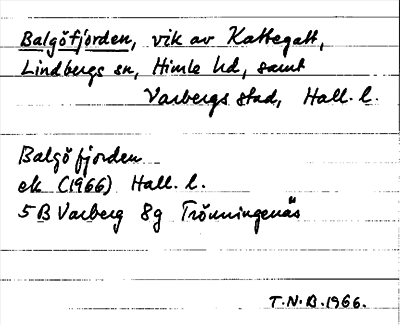 Balgöfjorden, vik av Kattegatt,
Lindbergs sn, Himle hd, samt
Varbergs stad, Hall. l.
Balgöfjorden
ek (1966) Hall. l.
5 B Varberg 8g Trönningenäs
T.N.B. 1966.